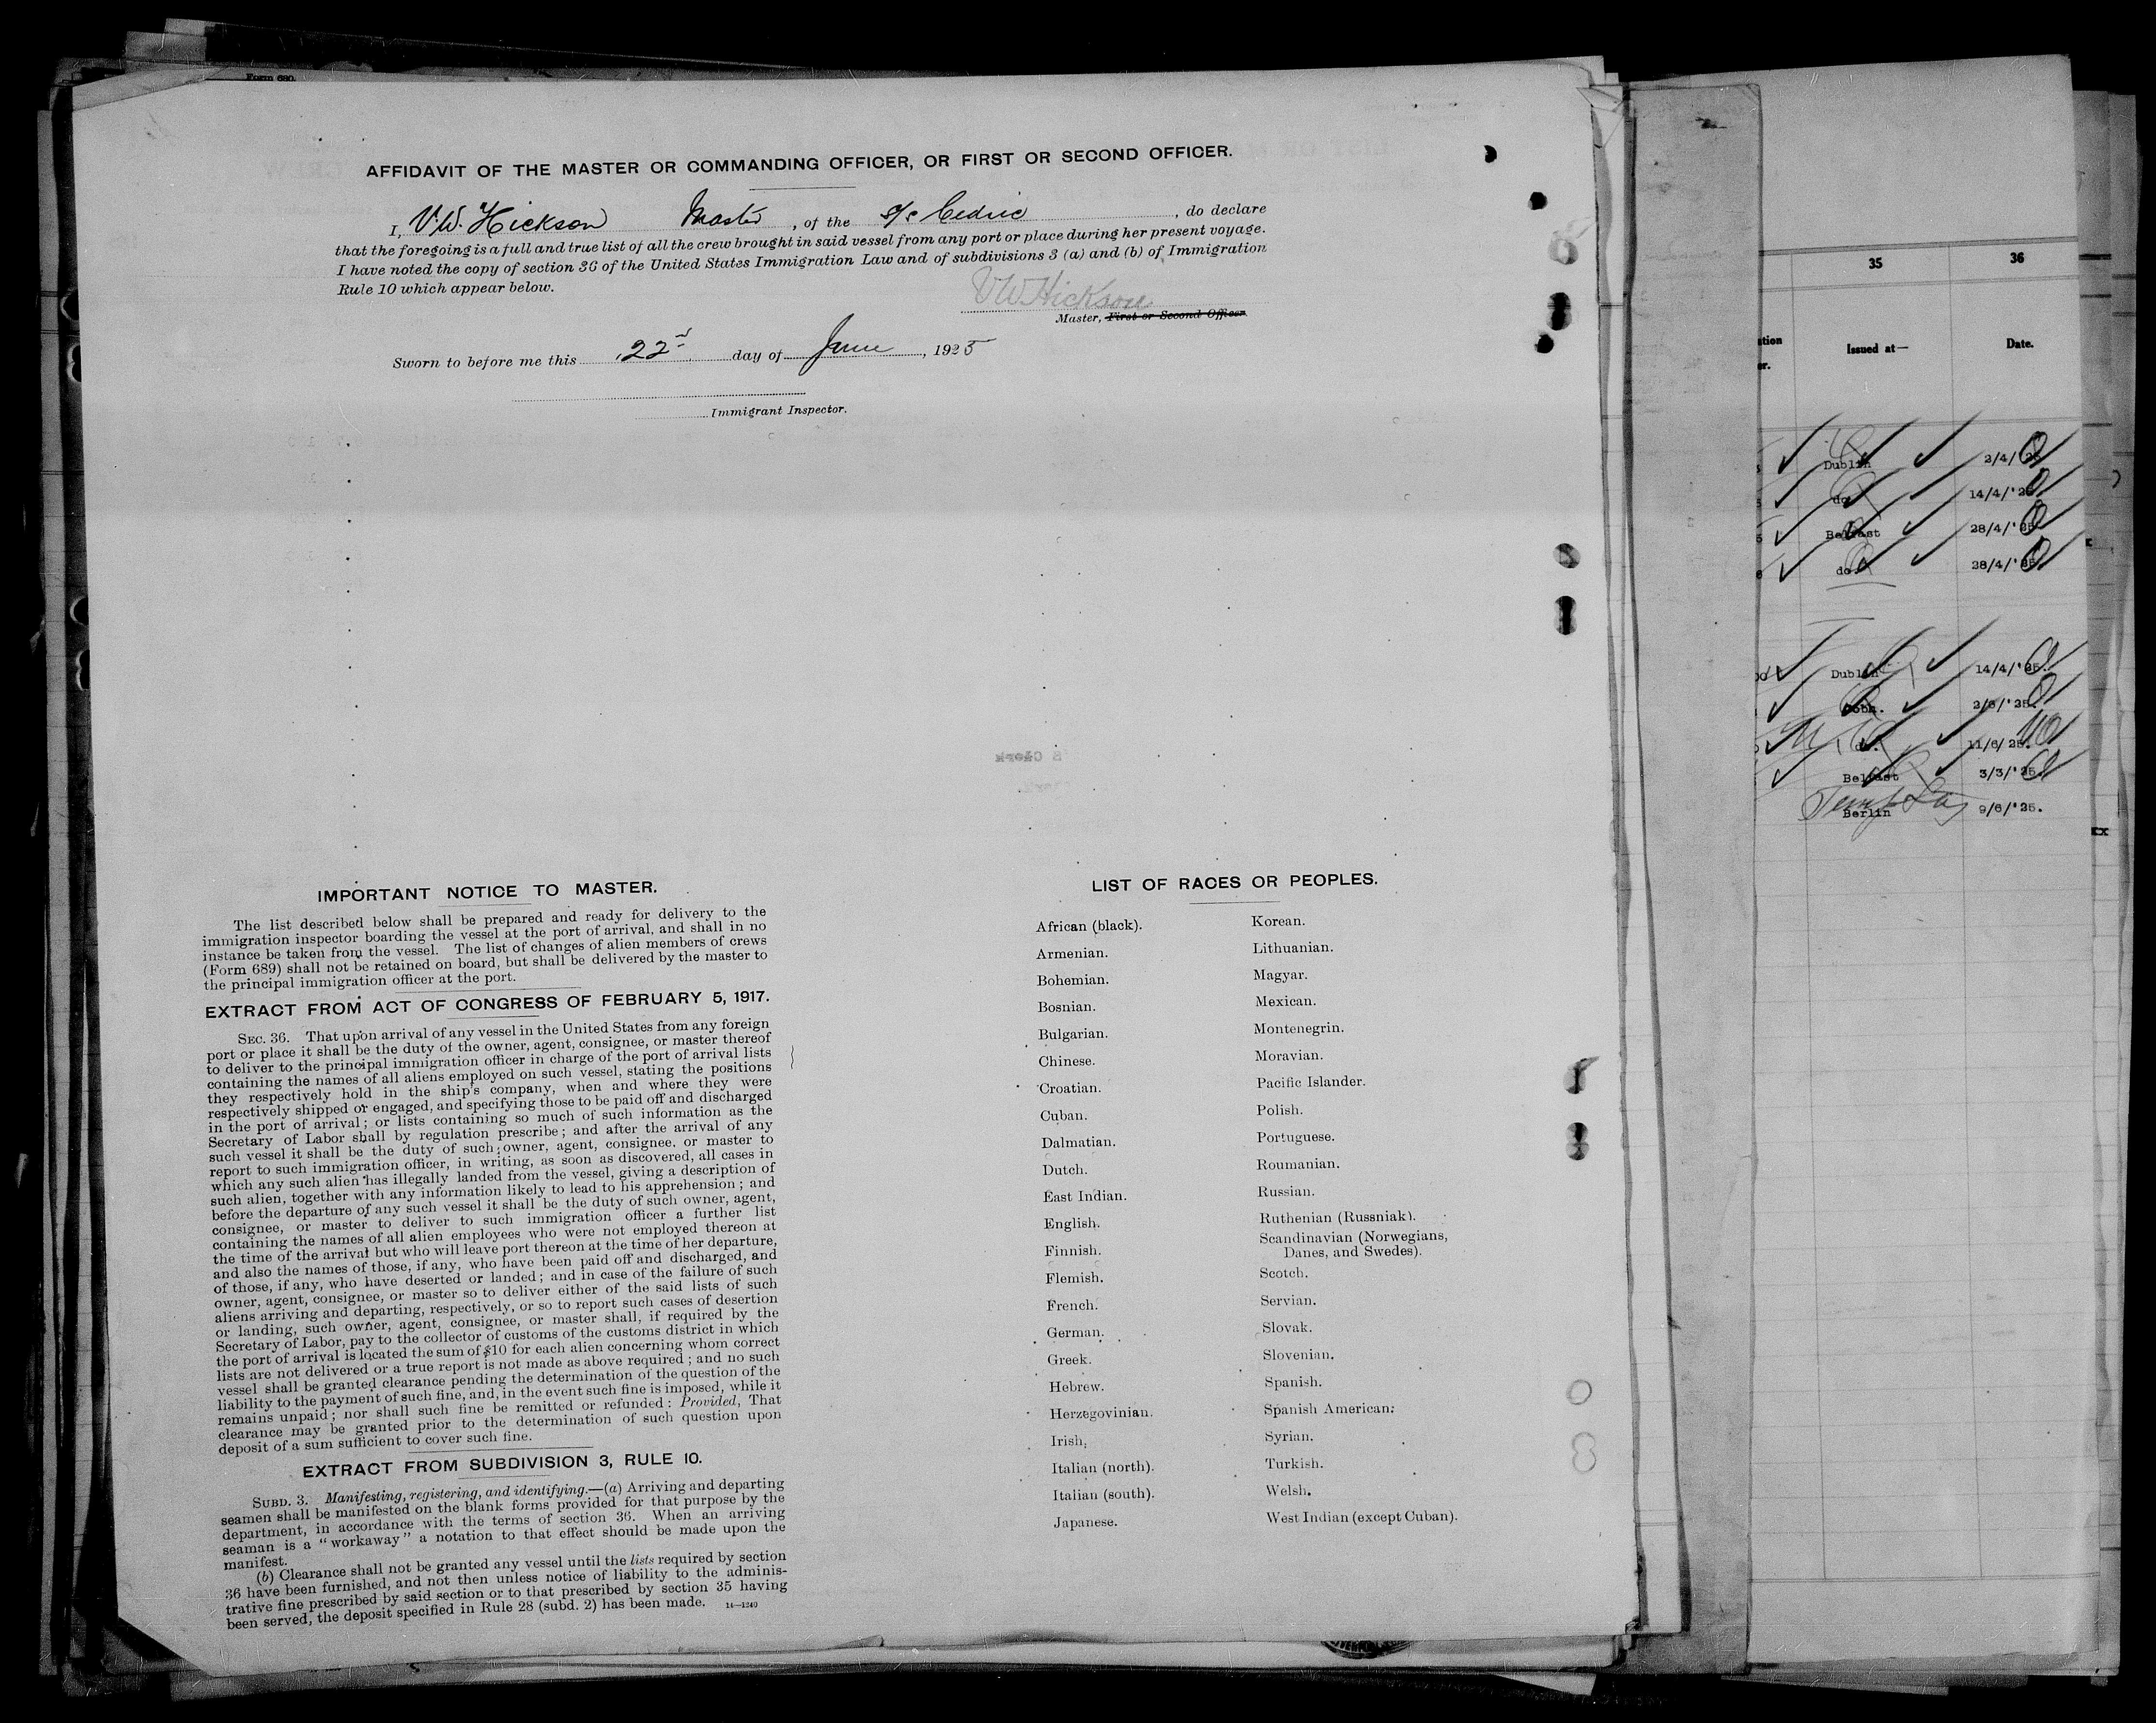 Form 680.
AFFIDAVIT OF THE MASTER OR COMMANDING OFFICER, OR FIRST OR SECOND OFFICER.
I, V.W. Hickson Master, of the s/s Cedric, do declare
that the foregoing is a full and true list of all the crew brought in said vessel from any port or place during her present voyage.
I have noted the copy of section 36 of the United States Immigration Law and of subdivisions 3 (a) and (b) of Immigration
Rule 10 which appear below.
V W Hickson
Master, First or Second Officer.
Sworn to before me this 22d day of June, 1925
Immigrant Inspector.
IMPORTANT NOTICE TO MASTER.
The list described below shall be prepared and ready for delivery to the
immigration inspector boarding the vessel at the port of arrival, and shall in no
instance be taken from the vessel. The list of changes of alien members of crews
(Form 689) shall not be retained on board, but shall be delivered by the master to
the principal immigration officer at the port.
EXTRACT FROM ACT OF CONGRESS OF FEBRUARY 5, 1917.
SEC. 36. That upon arrival of any vessel in the United States from any foreign
port or place it shall be the duty of the owner, agent, consignee, or master thereof
to deliver to the principal immigration officer in charge of the port of arrival lists
containing the names of all aliens employed on such vessel, stating the positions
they respectively hold in the ship's company, when and where they were
respectively shipped or engaged, and specifying those to be paid off and discharged
in the port of arrival; or lists containing so much of such information as the
Secretary of Labor shall by regulation prescribe; and after the arrival of any
such vessel it shall be the duty of such owner, agent, consignee, or master to
report to such immigration officer, in writing, as soon as discovered, all cases in
which any such alien has illegally landed from the vessel, giving a description of
such alien, together with any information likely to lead to his apprehension; and
before the departure of any such vessel it shall be the duty of such owner, agent,
consignee, or master to deliver to such immigration officer a further list
containing the names of all alien employees who were not employed thereon at
the time of the arrival but who will leave port thereon at the time of her departure,
and also the names of those, if any, who have been paid off and discharged, and
of those, if any, who have deserted or landed; and in case of the failure of such
owner, agent, consignee, or master so to deliver either of the said lists of such
aliens arriving and departing, respectively, or so to report such cases of desertion
or landing, such owner, agent, consignee, or master shall, if required by the
Secretary of Labor, pay to the collector of customs of the customs district in which
the port of arrival is located the sum of $10 for each alien concerning whom correct
lists are not delivered or a true report is not made as above required; and no such
vessel shall be granted clearance pending the determination of the question of the
liability to the payment of such fine, and, in the event such fine is imposed, while it
remains unpaid; nor shall such fine be remitted or refunded: Provided, That
clearance may be granted prior to the determination of such question upon
deposit of a sum sufficient to cover such fine.
EXTRACT FROM SUBDIVISION 3, RULE 10.
SUBD. 3. Manifesting, registering, and identifying.—(a) Arriving and departing
seamen shall be manifested on the blank forms provided for that purpose by the
department, in accordance with the terms of section 36. When an arriving
seaman is a "workaway" a notation to that effect should be made upon the
manifest.
(b) Clearance shall not be granted any vessel until the lists required by section
36 have been furnished, and not then unless notice of liability to the adminis-
trative fine prescribed by said section or to that prescribed by section 35 having
been served, the deposit specified in Rule 28 (subd. 2) has been made. 14—1240
LIST OF RACES OR PEOPLES.
African (black).
Armenian.
Bohemian.
Bosnian.
Bulgarian.
Chinese.
Croatian.
Cuban.
Dalmatian.
Dutch.
East Indian.
English.
Finnish.
Flemish.
French.
German.
Greek.
Hebrew.
Herzegovinian.
Irish.
Italian (north).
Italian (south).
Japanese.
Korean.
Lithuanian.
Magyar.
Mexican.
Montenegrin.
Moravian.
Pacific Islander.
Polish.
Portuguese.
Roumanian.
Russian.
Ruthenian (Russniak).
Scandinavian (Norwegians,
Danes, and Swedes).
Scotch.
Servian.
Slovak.
Slovenian.
Spanish.
Spanish American.
Syrian.
Turkish.
Welsh.
West Indian (except Cuban).
35 36
Issued at— Date.
Dublin 2/4/'25
do. 14/4/'25
Belfast 28/4/'25
do. 28/4/'25
Dublin 14/4/'25.
Cobh. 2/6/'25.
do. 11/6/25.
Belfast 3/3/'25.
Berlin 9/6/'25.